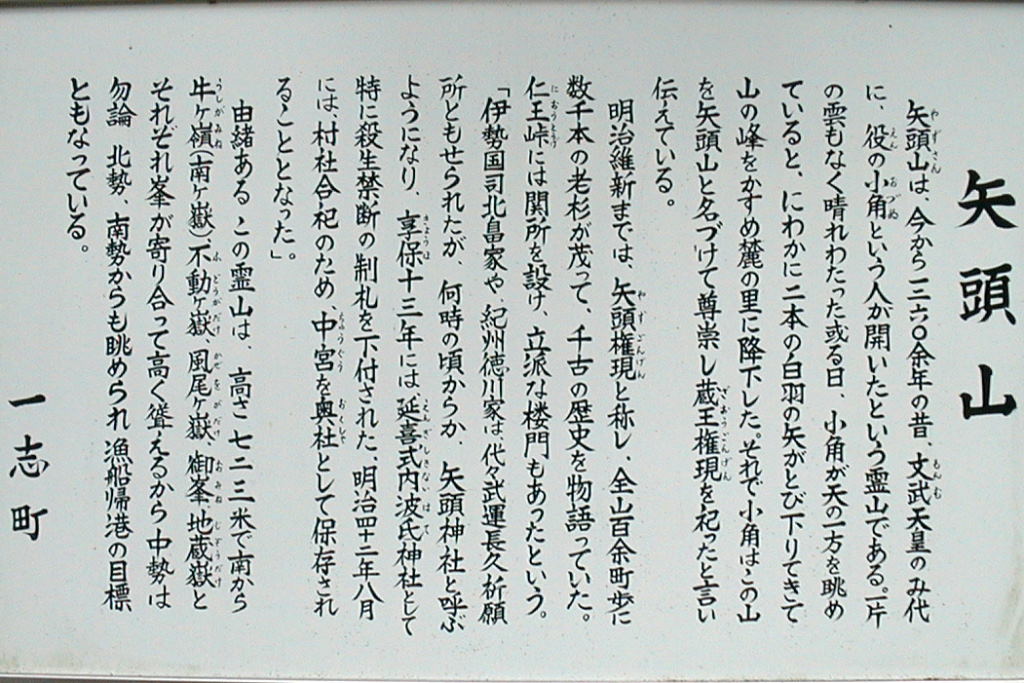 矢頭山
矢頭山は、今から一三六〇余年の昔、文武天皇のみ代
に、役の小角という人が開いたという霊山である。一片
の雲もなく晴れわたった或る日、小角が天の一方を眺め
ていると、にわかに二本の白羽の矢がとび下りてきて
山の峰をかすめ麓の里に降下した。それで小角はこの山
を矢頭山と名づけて尊崇し蔵王権現を祀ったと言い
伝えている。
明治維新までは、矢頭権現と称し、全山百余町歩に
数千本の老杉が茂って、千古の歴史を物語っていた。
仁王峠には関所を設け、立派な楼門もあったという。
「伊勢国司北畠家や、紀州徳川家は、代々武運長久祈願
所ともせられたが、何時の頃からか、矢頭神社と呼ぶ
ようになり、享保十三年には延喜式内波氐神社として
特に殺生禁断の制札を下付された、明治四十二年八月
には、村社合祀のため、中宮を奥社として保存され
ることとなった」。
由緒あるこの霊山は、高さ七二三米で南から
牛ヶ嶺(南ヶ嶽)、不動ヶ嶽、風尾ヶ嶽、御峯、地蔵嶽と
それぞれ峯が寄り合って高く聳えるから中勢は
勿論 北勢、南勢からも眺められ 漁船帰港の目標
ともなっている。
一志町